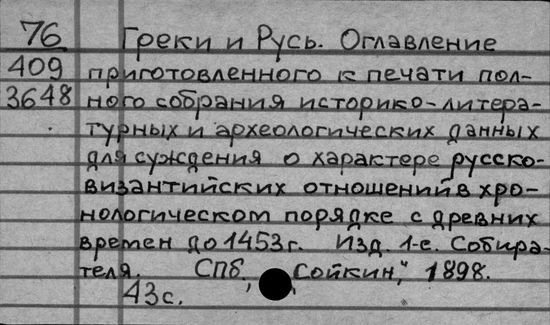 76 Греки и Русь. Оглавление
409 приготовленного к печати пол-
3648 ного собрания историко-литера-
турных и археологических данных
для суждения о характере русско-
византийских отношений в хро-
нологическом порядке с древних
времен до 1453 г. Изд. 1-е. Собира-
теля. Спб, „Сойкин," 1898.
43 с.